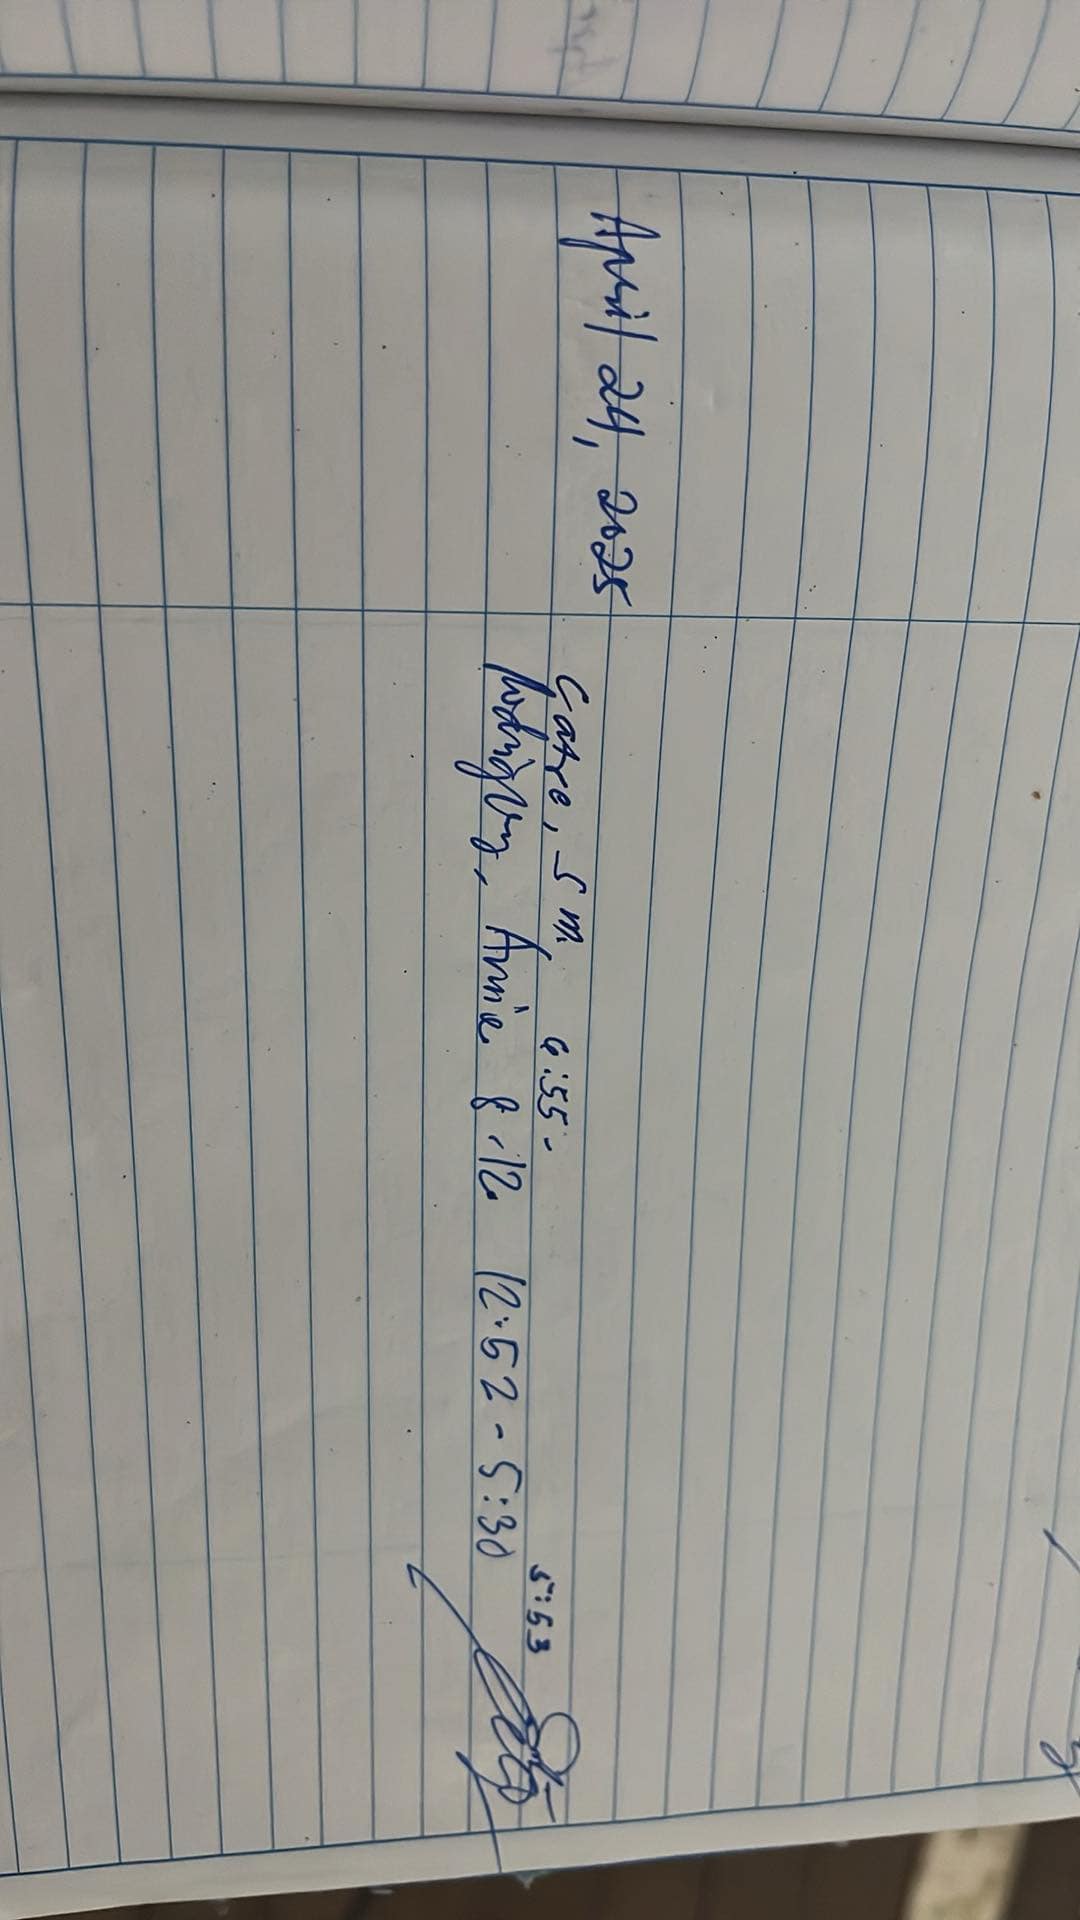 April 24, 2025
Catre, S m. 6:55 - 5:53
Rodriguez, Arnie 8-12 12:52 - 5:30